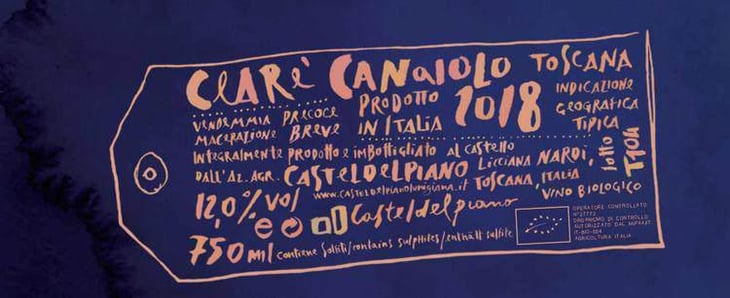 CLARÈ CANAIOLO TOSCANA
INDICAZIONE
GEOGRAFICA
TIPICA
VENDEMMIA PRECOCE
MACERAZIONE BREVE
PRODOTTO
IN ITALIA
2018
INTEGRALMENTE PRODOTTO E IMBOTTIGLIATO AL CASTELLO
DALL'AZ. AGR. CASTELDELPIANO LICCIANA NARDI,
www.CASTELDELPIANOlunigiana.it TOSCANA, ITALIA
VINO BIOLOGICO
lotto
T10H
12,0% vol
e
Casteldelpiano
750 ml contiene solfiti/contains sulphites/enthält sulfite
OPERATORE CONTROLLATO
ORGANISMO DI CONTROLLO
AUTORIZZATO DAL MIPAAFT.
IT-BIO-004
AGRICOLTURA ITALIA